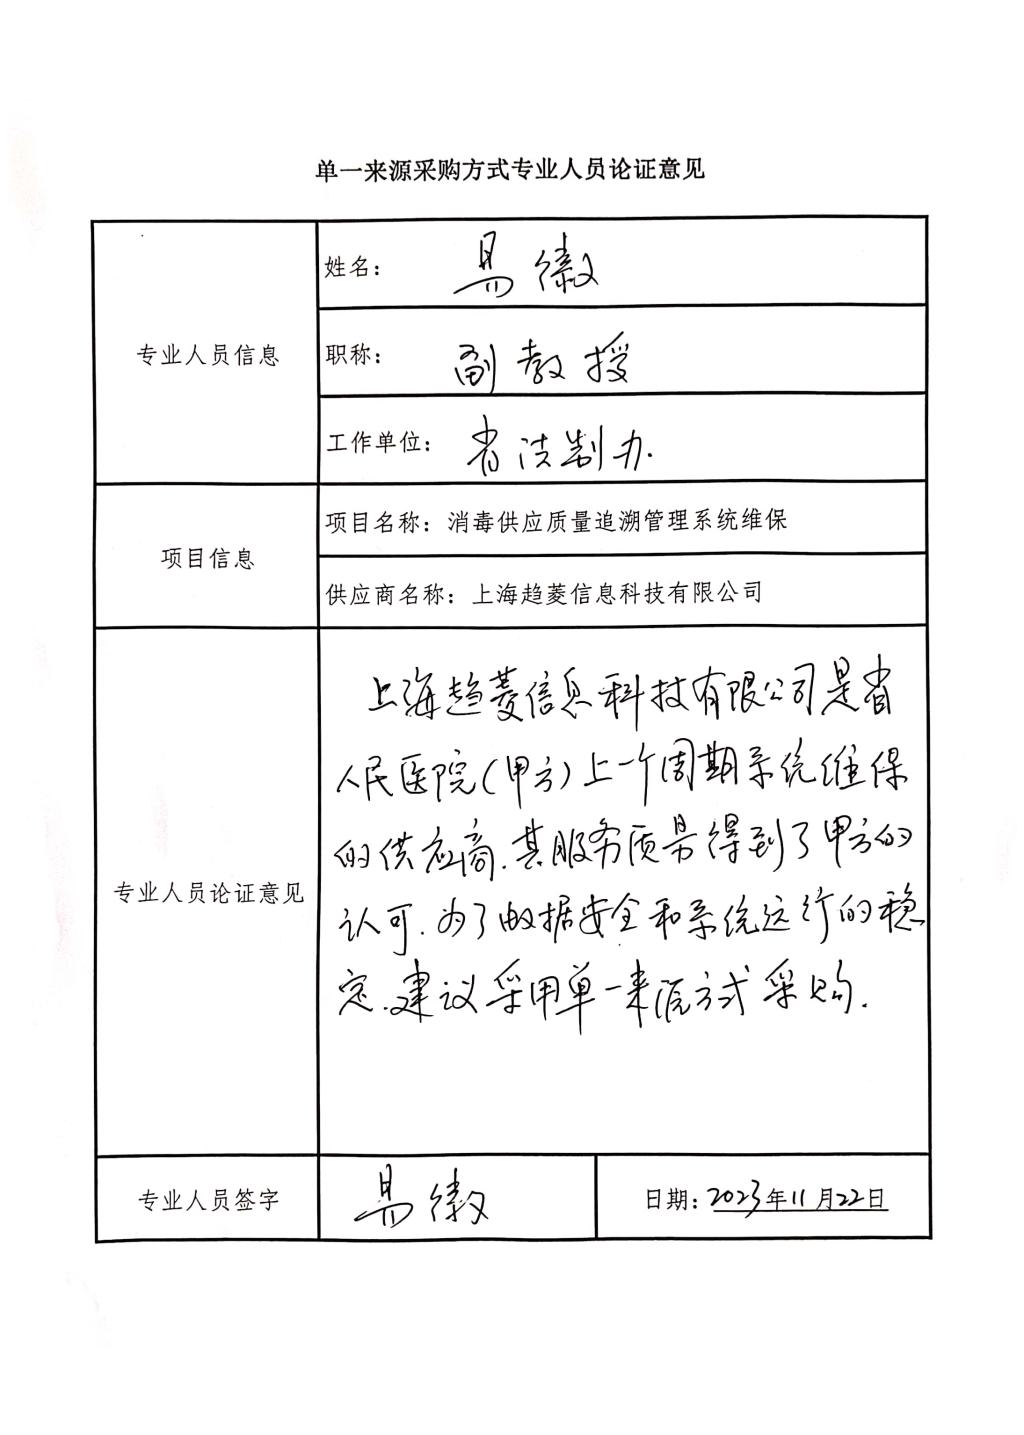 单一来源采购方式专业人员论证意见
专业人员信息
姓名：易徽
职称：副教授
工作单位：省法制办.
项目信息
项目名称：消毒供应质量追溯管理系统维保
供应商名称：上海趋菱信息科技有限公司
专业人员论证意见
上海趋菱信息科技有限公司是省
人民医院(甲方)上一个周期系统维保
的供应商.其服务质量得到了甲方的
认可.为了数据安全和系统运行的稳
定.建议采用单一来源方式采购.
专业人员签字
易徽
日期：2023年11月22日